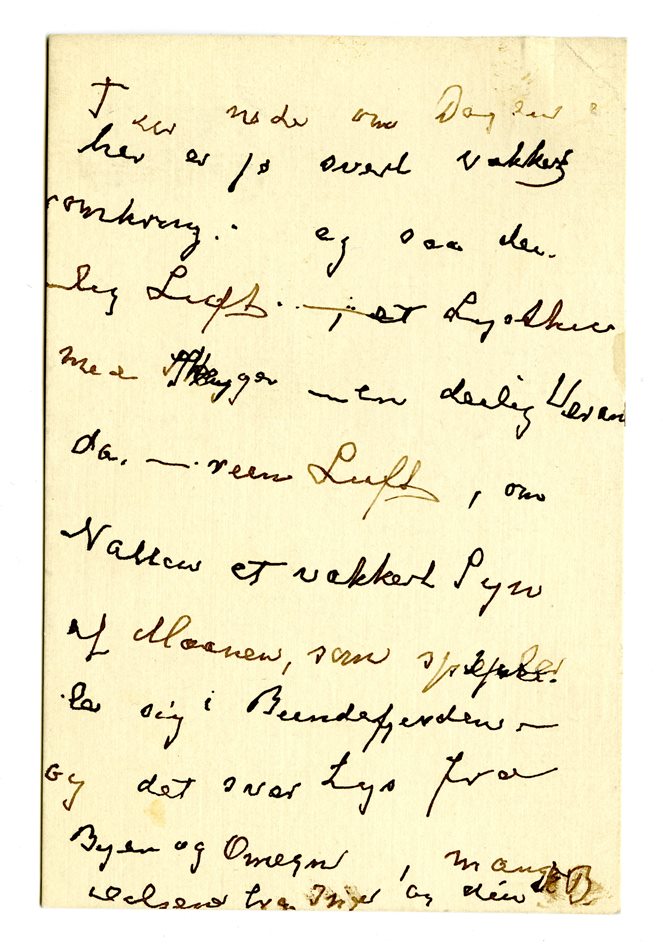 ner nede om Dagen
her er jo svert vakkert
omkring. og saa dei-
lig Luft – , et Lysthus
med Skygger – en deilig Veran
da. – reen Luft , om
Natten et vakkert Syn
af Maanen, som speiler
sig i Bundefjorden –
og det svær Lys fra
Byen og Omegn , mange
Hilsener fra Inger og din B